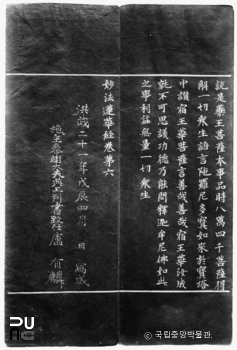 說是藥王菩薩本事品時八万四千菩薩得
解一切衆生語言陁羅尼多寶如來於寶塔
中讃宿王華菩薩言善哉善哉宿王華汝成
就不可思議功德乃能問釋迦牟尼佛如此
之事利益無量一切衆生
妙法蓮華經卷第六
洪武二十一年戊辰四月 日 寫成
大夫 判書 盧 有麟
국립중앙박물관